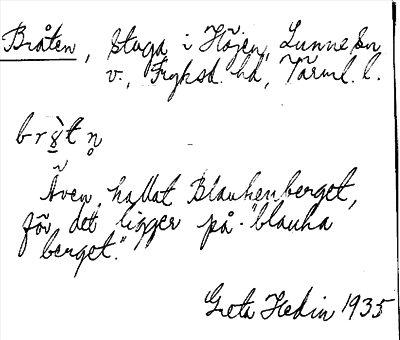 Bråten, stuga i Höjen, Lunne sn
v., Fryksd. hd, Värml. l.
bròtn̥
Även kallat Blaukenberget,
för det ligger på "blauka
berget."
Greta Hedin 1935